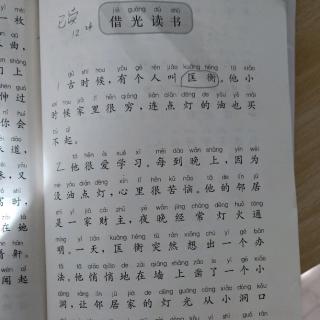 jiè guāng dú shū
借光读书
gǔ shí hou yǒu gè rén jiào kuāng héng tā xiǎo
1 古时候，有个人叫匡衡。他小
shí hou jiā lǐ hěn qióng lián diǎn dēng de yóu yě mǎi
时候家里很穷，连点灯的油也买
bù qǐ
不起。
tā hěn ài xué xí měi dào wǎn shàng yīn wèi
2 他很爱学习。每到晚上，因为
méi yóu diǎn dēng xīn lǐ hěn kǔ nǎo tā de lín jū
没油点灯，心里很苦恼。他的邻居
shì yì jiā cái zhǔ yè wǎn jīng cháng dēng huǒ tōng
是一家财主，夜晚经常灯火通
míng yì tiān kuāng héng tū rán xiǎng chū yí gè bàn
明。一天，匡衡突然想出一个办
fǎ tā qiāo qiāo de zài qiáng shàng záo le yí gè xiǎo
法。他悄悄地在墙上凿了一个小
dòng ràng lín jū jiā de dēng guāng cóng xiǎo dòng kǒu
洞，让邻居家的灯光从小洞口